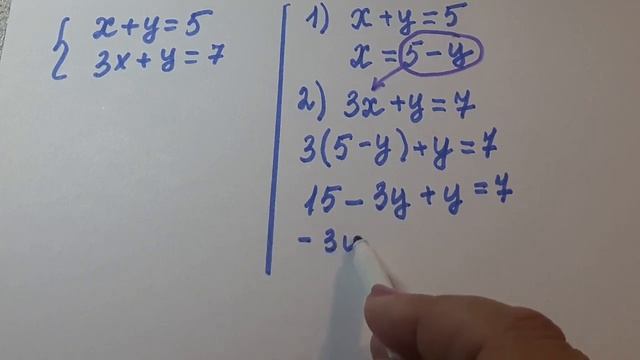 x+y=5
3x+y=7
1) x+y=5
x=5-y
2) 3x+y=7
3(5-y)+y=7
15-3y+y=7
-3y